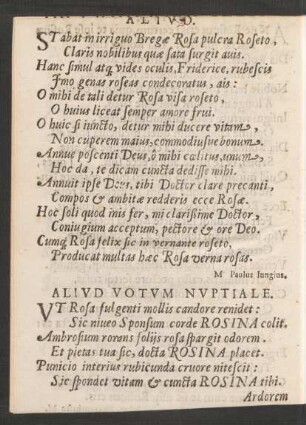 ALIVD.
STabat in irriguo Bregæ Rosa pulcra Roseto,
Claris nobilibus quæ sata surgit avis.
Hanc simul atq; vides oculis, Friderice, rubescis
Imo genas roseas condecoratus, ais:
O mihi de tali detur Rosa visa roseto,
O huius liceat semper amore frui.
O huic si iuncto, detur mihi ducere vitam,
Non cuperem maius, commodiusve bonum.
Annue poscenti Deus, ô mihi cælitus, unum,
Hoc da, te dicam cuncta dedisse mihi.
Annuit ipse Deus, tibi Doctor clare precanti,
Compos & ambitæ redderis ecce Rosæ.
Hoc soli quod inis fer, mi clarissime Doctor,
Coniugium acceptum, pectore & ore Deo.
Cumq; Rosa felix sic in vernante roseto,
Producat multas hæc Rosa verna rosas.
M Paulus Iungius.
ALIVD VOTVM NVPTIALE.
VT Rosa fulgenti mollis candore renidet:
Sic niveo Sponsum corde ROSINA colit.
Ambrosium rorans folijs rosa spargit odorem.
Et pietas tua sic, docta ROSINA placet.
Punicio interius rubicunda cruore nitescit:
Sic spondet vitam & cuncta ROSINA tibi.
Ardorem